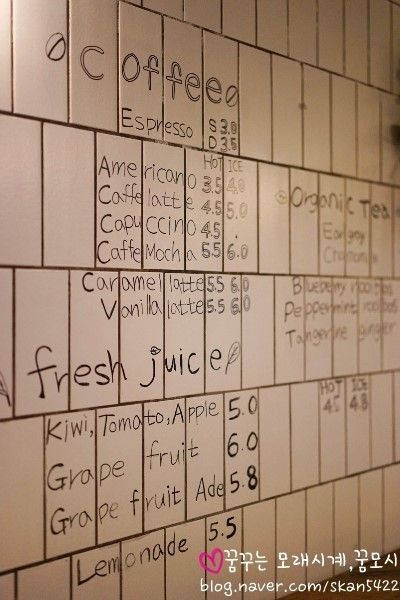 coffee
Espresso S 3.0
D 3.5
HOT ICE
Americano 3.5 4.0
Caffe latte 4.5 5.0
Capuccino 4.5 .
Caffe Mocha 5.5 6.0
Caramel latte 5.5 6.0
Vanilla latte 5.5 6.0
fresh juice
Kiwi, Tomato, Apple 5.0
Grape fruit 6.0
Grape fruit Ade 5.8
Lemonade 5.5
Organic Tea
Earl grey
Blueberry rooibos
Peppermint rooibos
Tangerine ginger
HOT ICE
4.5 4.8
꿈꾸는 모래시계,꿈모시
blog.naver.com/skan5422